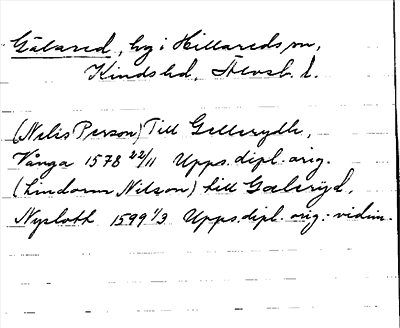 Gälared, by i Hillareds sn,
Kinds hd, Älvsb. l.
(Nelis Person) Till Gellerydh,
Vånga 1578 22/11 Upps. dipl. orig.
(Lindorm Nilson) till Gæleryd,
Nyslott 1599 1/3 Upps. dipl. orig.-vidim.